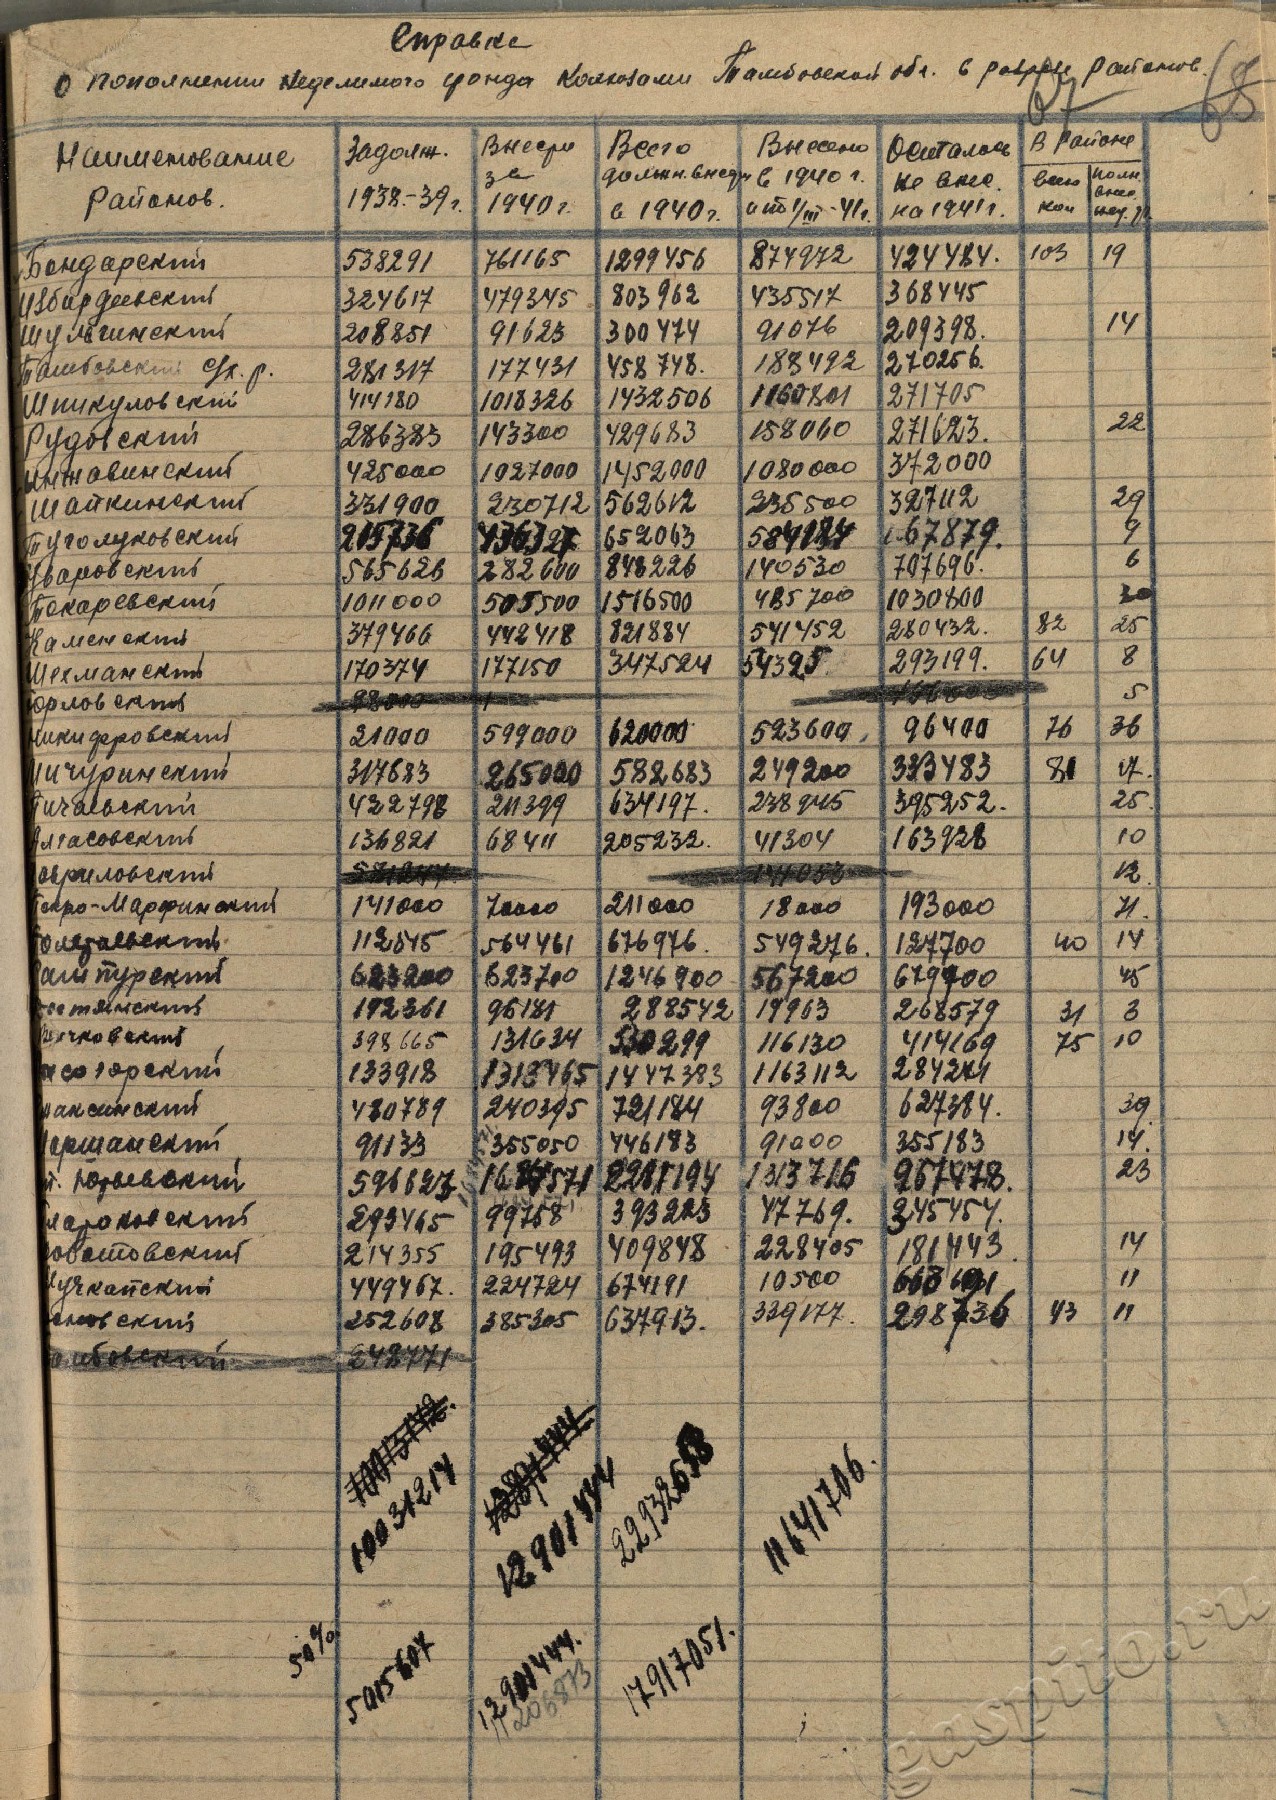 Справка
О пополнении неделимого фонда Колхозами Тамбовской обл. в разрезе районов.
67 68
Наименование Районов. Задолж. 1938-39г. Внести за 1940г. Всего должн. внести в 1940г. Внесено в 1940г. и по 1/III-41г. Осталось не внес. на 1941г. В районе всего кол полн. внес.
Бондарский 538291 761165 1299456 874972 424484. 103 19
Избердеевский 324617 479345 803962 435517 368445
Шульгинский 208851 91623 300474 91076 209398. 14
Тамбовский с/х. р. 281317 177431 458748. 188492 270256.
Шпикуловский 414180 1018326 1432506 1160801 271705
Рудовский 286383 143300 429683 158060 271623. 22
Инжавинский 425000 1027000 1452000 1080000 372000
Шапкинский 331900 230712 562612 235500 327112 29
Туголуковский 215736 436327 652063 584184 67879. 9
Уваровский 565626 282600 848226 140530 707696. 6
Токаревский 1011000 505500 1516500 485700 1030800 30
Каменский 379466 442418 821884 541452 280432. 82 25
Шехманский 170374 177150 347524 54325. 293199. 64 8
Юрловский 5
Никифоровский 21000 599000 620000 523600. 96400 76 36
Мичуринский 317683 265000 582683 249200 333483 81 17.
Пичаевский 422798 211399 634197. 238945 395252. 25.
Алгасовский 136821 68411 205232. 41304 163928 10
Гавриловский 141053 12.
Покро-Марфинский 141000 70000 211000 18000 193000 21.
Полетаевский 112515 564461 676976. 549276. 127700 40 14
Ракшинский 623200 623700 1246900 567200 679700 45
Хоботовский 192361 96181 288542 19963 268579 31 3
Бычковский 398665 131634 530299 116130 414169 75 10
Мордовский 133918 1313465 1447383 1163112 284271
480789 240395 721184 93800 627384. 39
Моршанский 91133 355050 446183 91000 355183 14.
Ст. Юрьевский 596623 1684571 2281194 1313716 967478. 23
Глазковский 293465 99758 393223 47769. 345454.
214355 195493 409848 228405 181443 14
Мучкапский 449467. 224724 674191 10500 663691 11
252608 385305 637913. 339177. 298736 43 11
Тамбовский 248771
10013142.
10031214
12901444
22932658
11641706.
50%.
5015607
12901444.
11206873
17917051.
gaspito.ru